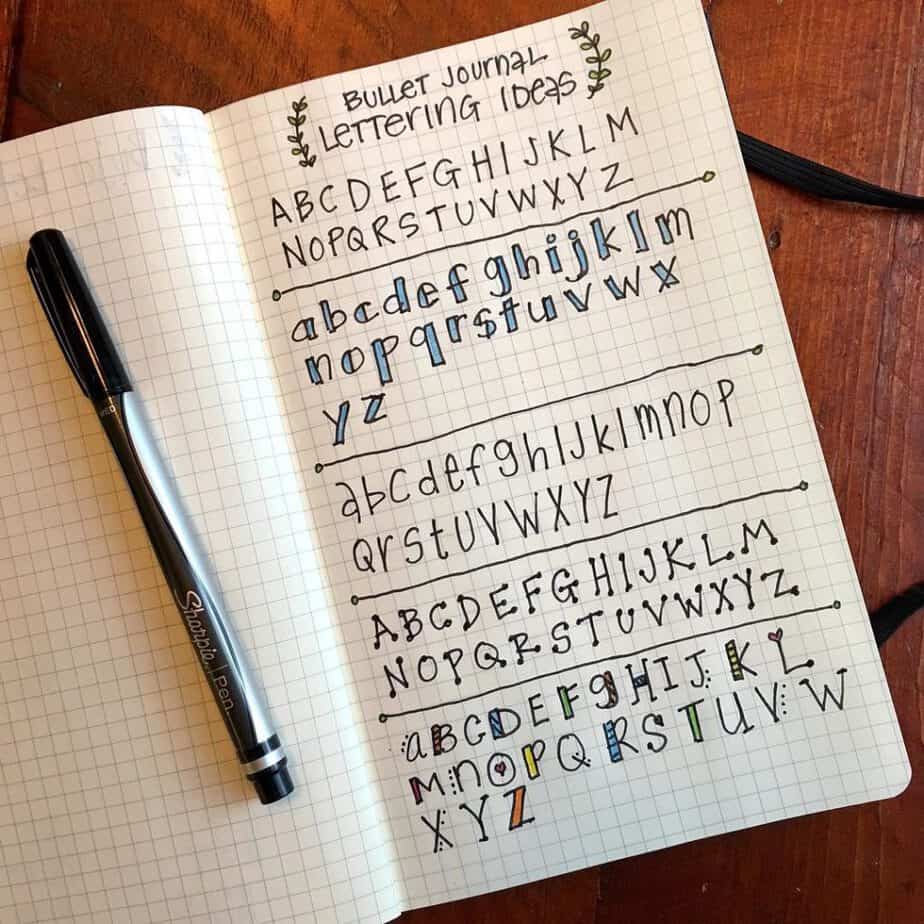 BULLET JOURNAL
LETTERING IDEAS
ABCDEFGHIJKLM
NOPQRSTUVWXYZ
abcdefghijklm
nopqrstuvwx
yz
abcdefghIJklmnop
qrstUVWXYZ
ABCDEFGHIJKLM
NOPQRSTUVWXYZ
aBCDEFgHIJKL
MnOPQRSTUVW
XYZ
Sharpie Pen